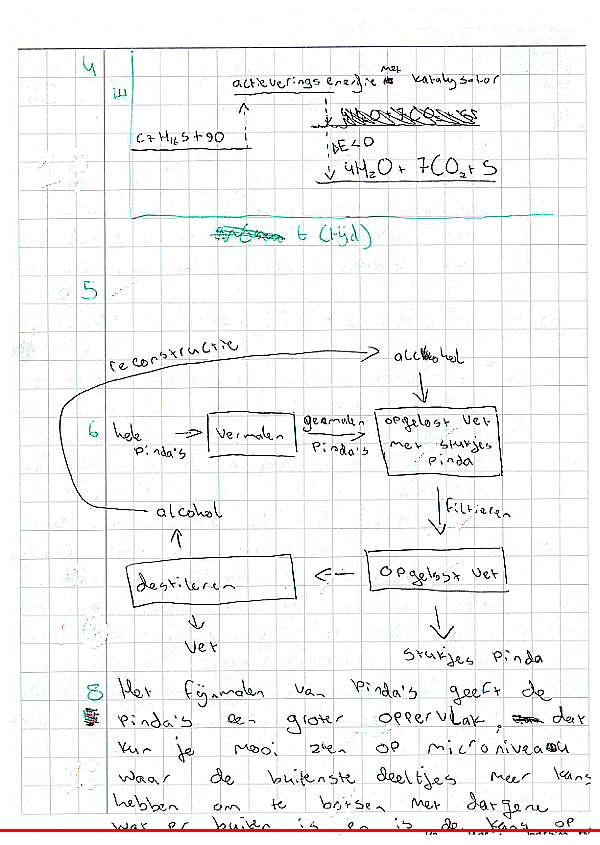 4
E
activeringsenergie met katalysator
C7H16S+9O
ΔE<0
4H2O + 7CO2 + S
t (tijd)
5
reconstructie
alcohol
6
hele pinda's
vermalen
gemalen pinda's
opgelost vet
met stukjes
pinda
filtreren
alcohol
destileren
opgelost vet
vet
stukjes pinda
8 Het fijnmalen van pinda's geeft de
pinda's een groter oppervlak, dat
kun je mooi zien op microniveau
waar de buitenste deeltjes meer kans
hebben om te botsen met datgene
wat er buiten is en is de kans op